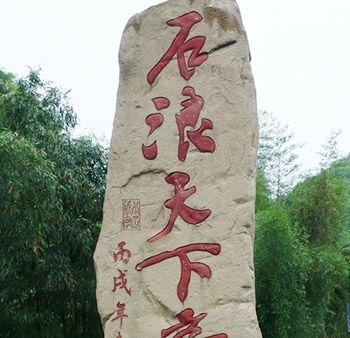 石浪天下
丙戌年